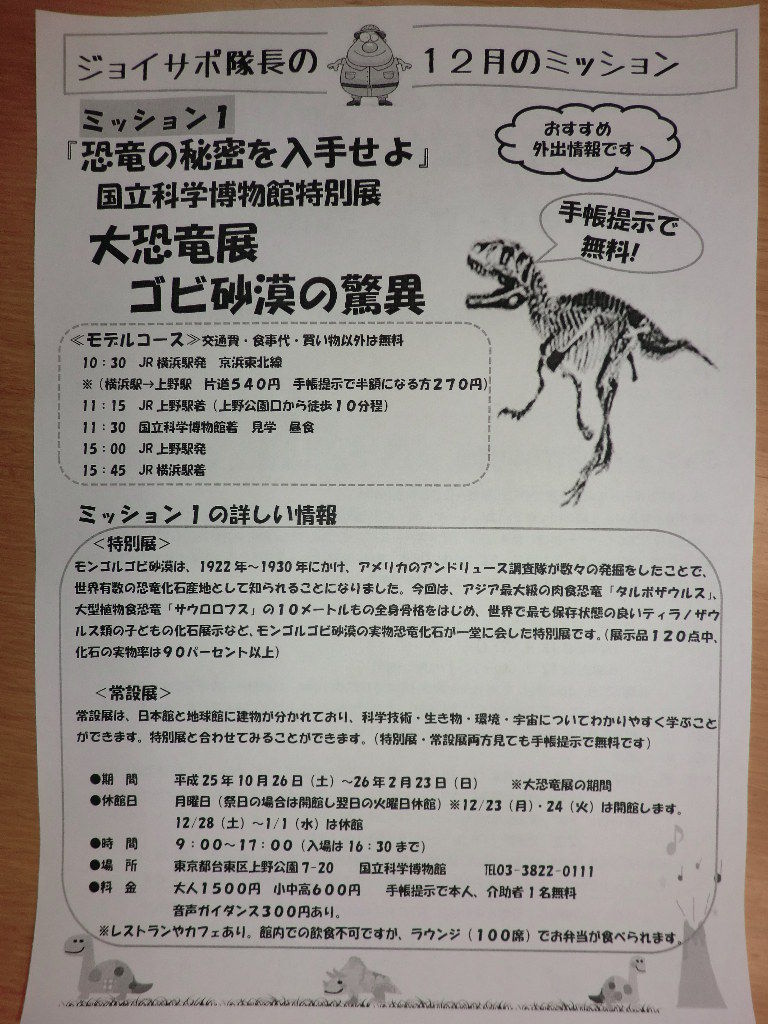 ジョイサポ隊長の １２月のミッション
ミッション１
『恐竜の秘密を入手せよ』
おすすめ
外出情報です
国立科学博物館特別展
大恐竜展
ゴビ砂漠の驚異
手帳提示で
無料!
≪モデルコース≫交通費・食事代・買い物以外は無料
10：30 JR横浜駅発 京浜東北線
※（横浜駅→上野駅 片道５４０円 手帳提示で半額になる方２７０円）
11：15 JR上野駅着（上野公園口から徒歩１０分程）
11：30 国立科学博物館着 見学 昼食
15：00 JR上野駅発
15：45 JR横浜駅着
ミッション１の詳しい情報
＜特別展＞
モンゴルゴビ砂漠は、1922年～1930年にかけ、アメリカのアンドリュース調査隊が数々の発掘をしたことで、
世界有数の恐竜化石産地として知られることになりました。今回は、アジア最大級の肉食恐竜「タルボザウルス」、
大型植物食恐竜「サウロロフス」の１０メートルもの全身骨格をはじめ、世界で最も保存状態の良いティラノザウ
ルス類の子どもの化石展示など、モンゴルゴビ砂漠の実物恐竜化石が一堂に会した特別展です。（展示品１２０点中、
化石の実物率は９０パーセント以上）
＜常設展＞
常設展は、日本館と地球館に建物が分かれており、科学技術・生き物・環境・宇宙についてわかりやすく学ぶこと
ができます。特別展と合わせてみることができます。（特別展・常設展両方見ても手帳提示で無料です）
●期 間 平成25年10月26日（土）～26年2月23日（日） ※大恐竜展の期間
●休館日 月曜日（祭日の場合は開館し翌日の火曜日休館）※12/23（月）・24（火）は開館します。
12/28（土）～1/1（水）は休館
●時 間 ９：００～１７：００（入場は16：30まで）
●場 所 東京都台東区上野公園7-20 国立科学博物館 ℡03-3822-0111
●料 金 大人１５００円 小中高６００円 手帳提示で本人、介助者１名無料
音声ガイダンス３００円あり。
※レストランやカフェあり。館内での飲食不可ですが、ラウンジ（１００席）でお弁当が食べられます。